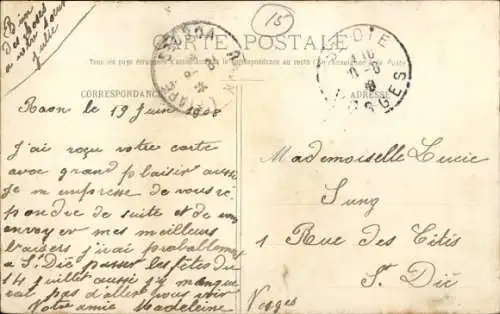 Bien
des choses
a votre soeur
Julie
15
CARTE POSTALE
Tous les pays étrangers n'acceptent pas la correspondance au recto
CORRESPONDANCE
ADRESSE
RAON L'ETAPE
ST DIE
VOSGES
Raon le 19 Juin 1908
J'ai reçu votre carte
avec grand plaisir aussi
je m'empresse de vous ré
pondre de suite et de vous
envoyer mes meilleurs
baisers j'irai probablement
a St Dié passer les fêtes du
14 juillet aussi j'y manque
rai pas d'aller vous voir
Votre amie Madeleine
Mademoiselle Lucie
Jung
1 Rue des Cités
St Dié
Vosges